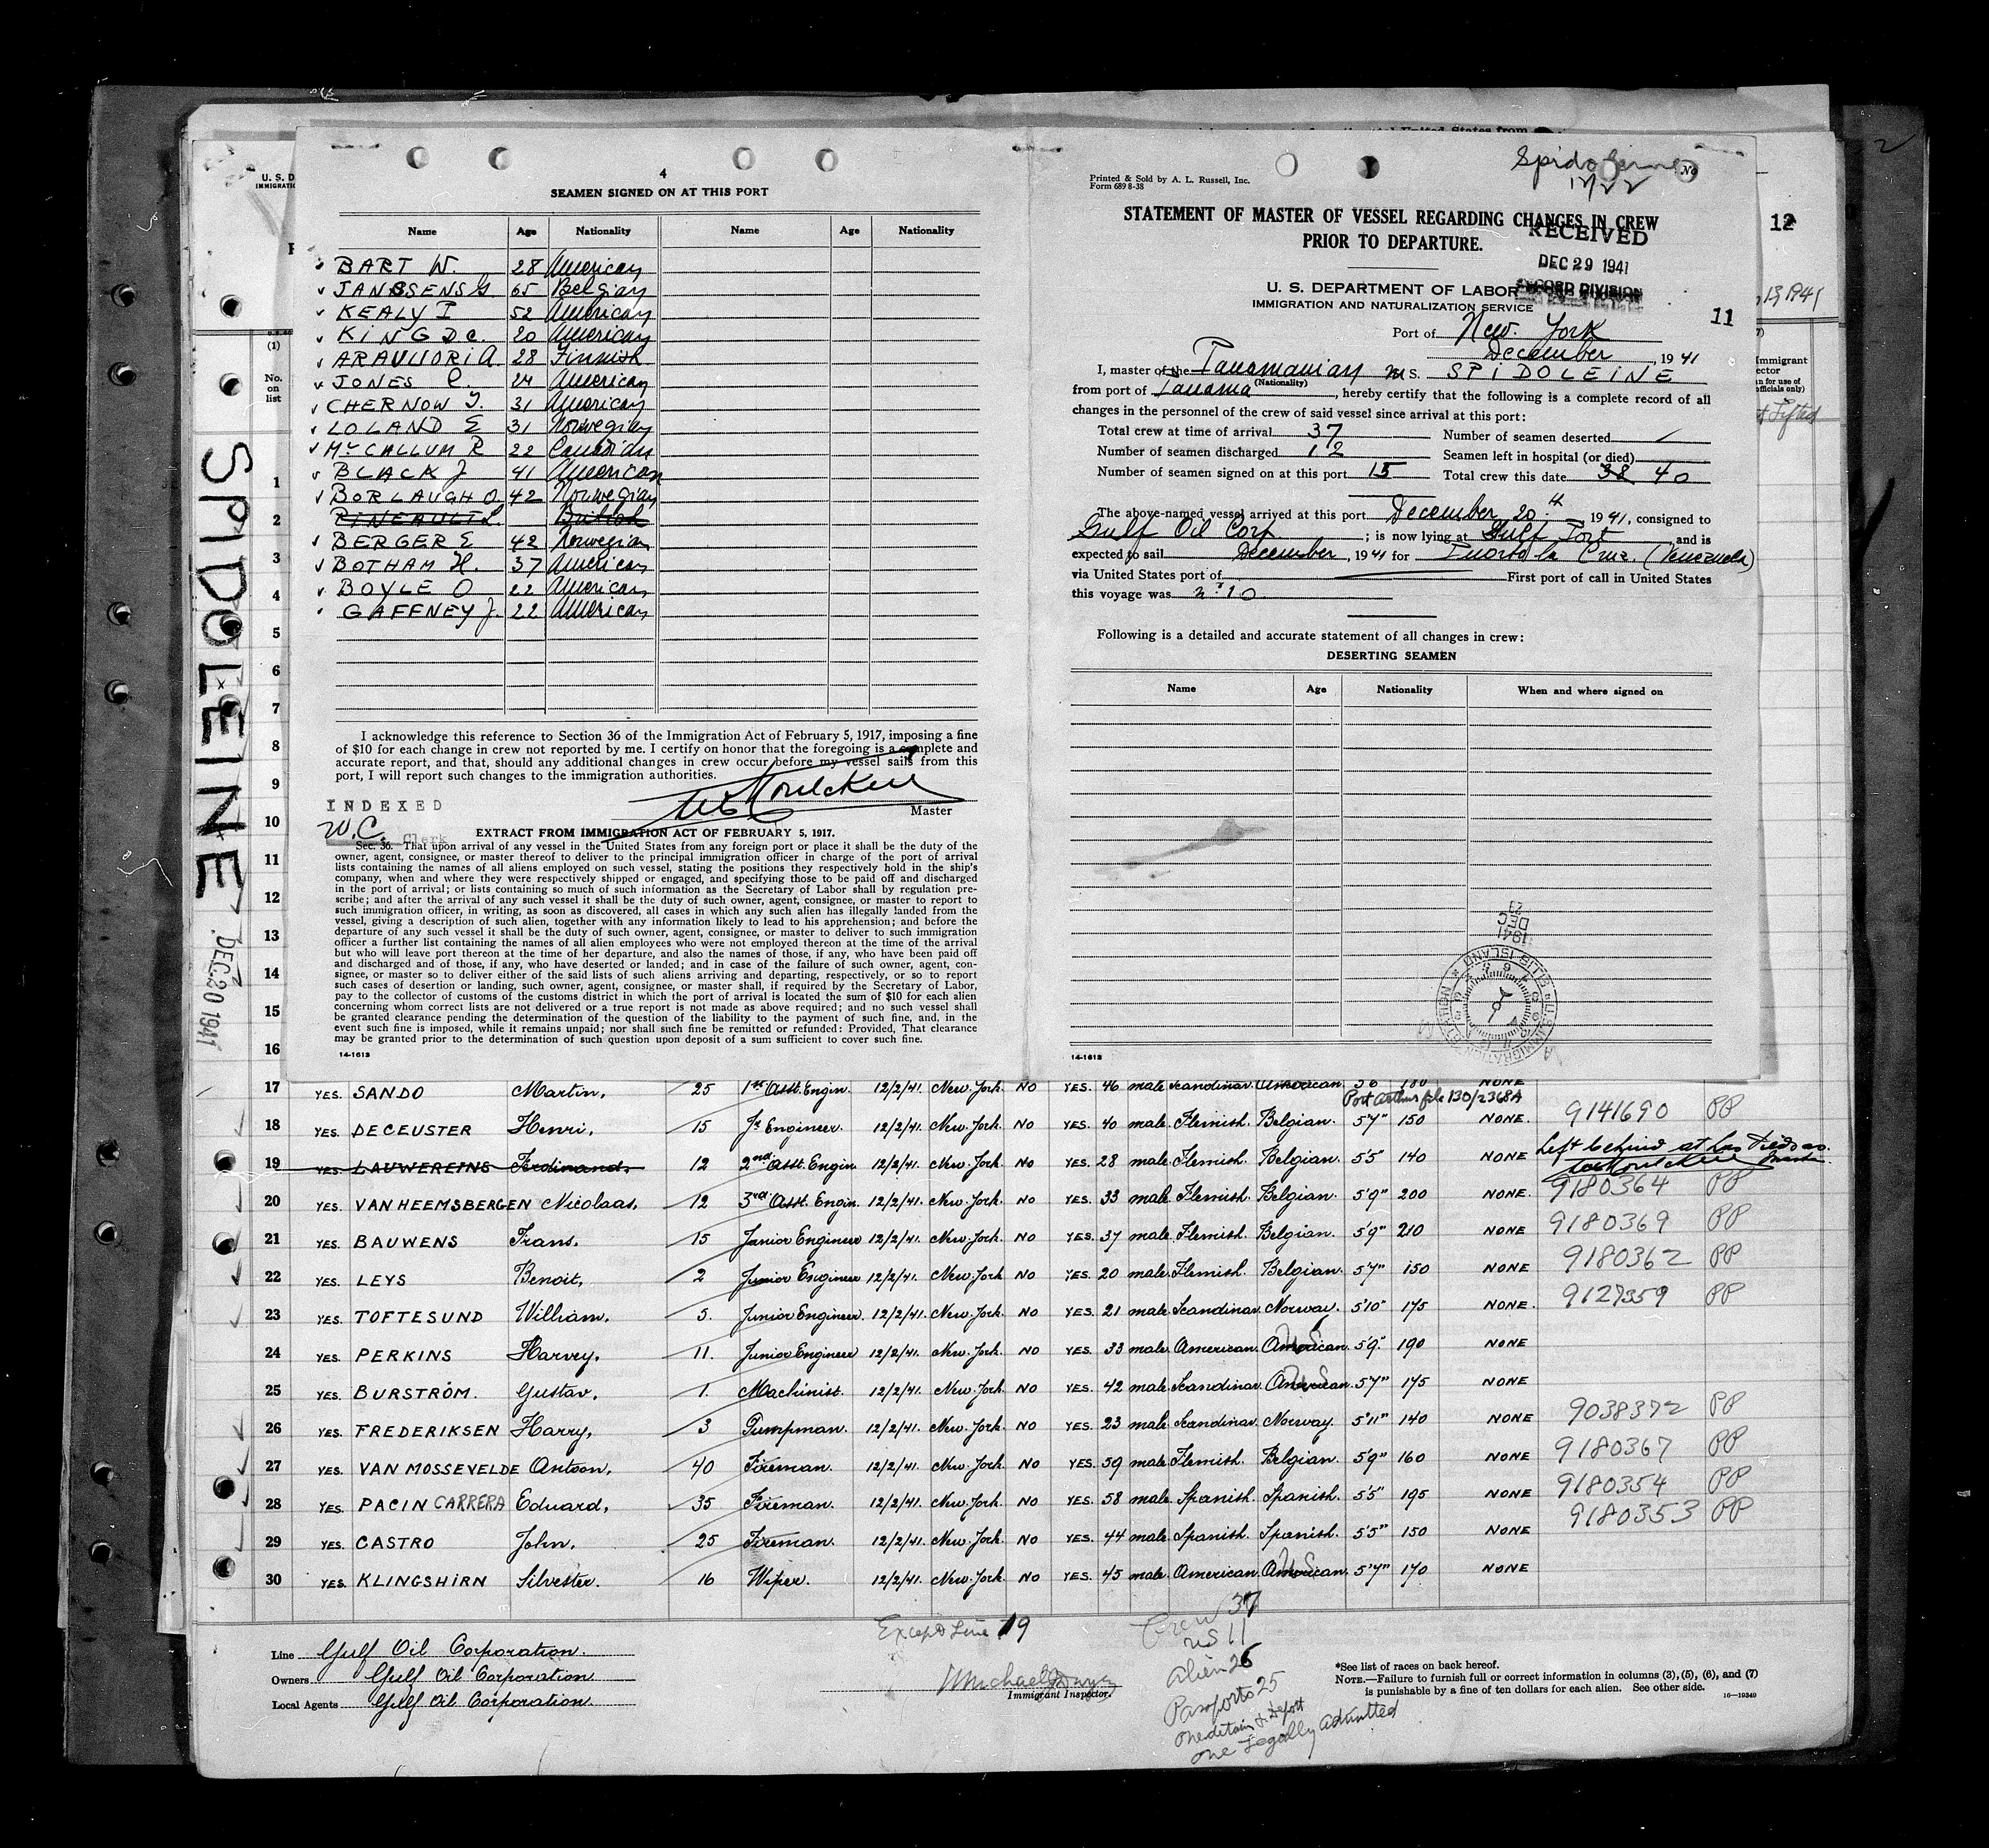 4
SEAMEN SIGNED ON AT THIS PORT
Name Age Nationality Name Age Nationality
BART W. 28 American
JANSSENS G. 65 Belgian
KEALY T 52 American
KING DC. 20 American
ARAVUORI A. 28 Finnish
JONES C. 24 American
CHERNOW J. 31 American
LOLAND E 31 Norwegian
Mc CALLUM R 22 Canadian
BLACK J 41 American
BORLAUGH O. 42 Norwegian
PINEAULT L. British
BERGER E 42 Norwegian
BOTHAM H. 37 American
BOYLE O 22 American
GAFFNEY J. 22 American
I acknowledge this reference to Section 36 of the Immigration Act of February 5, 1917, imposing a fine
of $10 for each change in crew not reported by me. I certify on honor that the foregoing is a complete and
accurate report, and that, should any additional changes in crew occur before my vessel sails from this
port, I will report such changes to the immigration authorities.
INDEXED
W.C. Clerk
Master
EXTRACT FROM IMMIGRATION ACT OF FEBRUARY 5, 1917.
Sec. 36. That upon arrival of any vessel in the United States from any foreign port or place it shall be the duty of the
owner, agent, consignee, or master thereof to deliver to the principal immigration officer in charge of the port of arrival
lists containing the names of all aliens employed on such vessel, stating the positions they respectively hold in the ship's
company, when and where they were respectively shipped or engaged, and specifying those to be paid off and discharged
in the port of arrival; or lists containing so much of such information as the Secretary of Labor shall by regulation pre-
scribe; and after the arrival of any such vessel it shall be the duty of such owner, agent, consignee, or master to report to
such immigration officer, in writing, as soon as discovered, all cases in which any such alien has illegally landed from the
vessel, giving a description of such alien, together with any information likely to lead to his apprehension; and before the
departure of any such vessel it shall be the duty of such owner, agent, consignee, or master to deliver to such immigration
officer a further list containing the names of all alien employees who were not employed thereon at the time of the arrival
but who will leave port thereon at the time of her departure, and also the names of those, if any, who have been paid off
and discharged and of those, if any, who have deserted or landed; and in case of the failure of such owner, agent, con-
signee, or master so to deliver either of the said lists of such aliens arriving and departing, respectively, or so to report
such cases of desertion or landing, such owner, agent, consignee, or master shall, if required by the Secretary of Labor,
pay to the collector of customs of the customs district in which the port of arrival is located the sum of $10 for each alien
concerning whom correct lists are not delivered or a true report is not made as above required; and no such vessel shall
be granted clearance pending the determination of the question of the liability to the payment of such fine, and, in the
event such fine is imposed, while it remains unpaid; nor shall such fine be remitted or refunded: Provided, That clearance
may be granted prior to the determination of such question upon deposit of a sum sufficient to cover such fine.
14-1613
Printed & Sold by A. L. Russell, Inc.
Form 689 8-38
No
STATEMENT OF MASTER OF VESSEL REGARDING CHANGES IN CREW
PRIOR TO DEPARTURE.
RECEIVED
DEC 29 1941
RECORD DIVISION
U. S. DEPARTMENT OF LABOR
IMMIGRATION AND NATURALIZATION SERVICE
11
Port of New York
December, 1941
I, master of the Panamanian M S. SPIDOLEINE
(Nationality)
from port of Panama, hereby certify that the following is a complete record of all
changes in the personnel of the crew of said vessel since arrival at this port:
Total crew at time of arrival 37 Number of seamen deserted
Number of seamen discharged 12 Seamen left in hospital (or died)
Number of seamen signed on at this port 15 Total crew this date 38 40
The above-named vessel arrived at this port December 20th, 1941, consigned to
Gulf Oil Corp; is now lying at Gulf Port, and is
expected to sail December, 1941 for Puorto la Cruz. (Venezuela)
via United States port of First port of call in United States
this voyage was
Following is a detailed and accurate statement of all changes in crew:
DESERTING SEAMEN
Name Age Nationality When and where signed on
1941
DEC
23
14-1613
12
U. S. D
IMMIGRATIO
(1)
No.
on
list
Immigrant
SPIDOLEINE
DEC. 20 1941
1
2
3
4
5
6
7
8
9
10
11
12
13
14
15
16
17 YES. SANDO Martin, 25 1st Asst. Engin. 12/2/41. New. York. NO YES. 46 male Scandinav. American 5'6 180 NONE
Port Arthur file 130/2368A
18 YES. DECEUSTER Henri, 15 Jr Engineer. 12/2/41. New. York. NO YES. 40 male. Flemish. Belgian. 5'7" 150 NONE. 9141690 PP
19 YES. LAUWEREINS Ferdinand, 12 2nd Asst. Engin. 12/2/41. New. York. NO YES. 28 male. Flemish. Belgian. 5'5" 140 NONE Left behind at Las Piedras.
20 YES. VAN HEEMSBERGEN Nicolaas, 12 3rd Asst. Engin. 12/2/41. New. York. NO YES. 33 male. Flemish. Belgian. 5'9" 200 NONE. 9180364 PP
21 YES. BAUWENS Frans, 15 Junior Engineer 12/2/41. New. York. NO YES. 37 male. Flemish. Belgian. 5'9" 210 NONE 9180369 PP
22 YES. LEYS Benoit, 2 Junior Engineer 12/2/41. New. York NO YES. 20 male. Flemish. Belgian. 5'7" 150 NONE 9180362 PP
23 YES. TOFTESUND William, 5. Junior Engineer. 12/2/41. New. York. NO YES. 21 male. Scandinav. Norway. 5'10" 175 NONE. 9127359 PP
24 YES. PERKINS Harvey, 11. Junior Engineer 12/2/41. New. York. NO YES. 33 male. American. American. US 5'9." 190 NONE
25 YES. BURSTRÖM. Gustav, 1. Machinist. 12/2/41. New. York. NO YES. 42 male. Scandinav. American. US 5'7" 175 NONE
26 YES. FREDERIKSEN Harry, 3 Pumpman. 12/2/41. New. York. NO YES. 23 male. Scandinav. Norway. 5'11" 140 NONE 9038372 PP
27 YES. VAN MOSSEVELDE Antoon, 40 Fireman. 12/2/41. New. York. NO YES. 59 male. Flemish. Belgian. 5'9" 160 NONE 9180367 PP
28 YES. PACIN CARRERA Eduard, 35 Fireman. 12/2/41. New. York. NO YES. 58 male. Spanish. Spanish. 5'5" 195 NONE 9180354 PP
29 YES. CASTRO John, 25 Fireman. 12/2/41. New. York. NO YES. 44 male. Spanish. Spanish. 5'5" 150 NONE 9180353 PP
30 YES. KLINGSHIRN Silvester. 16 Wiper. 12/2/41. New. York. NO YES. 45 male. American. American. US 5'7" 170 NONE
Except Line 19
Crew 37
US 11
Alien 26
Passports 25
one detain & Deport
one Legally admitted
Line Gulf Oil Corporation.
Owners Gulf Oil Corporation
Local Agents Gulf Oil Corporation.
Immigrant Inspector.
*See list of races on back hereof.
NOTE.—Failure to furnish full or correct information in columns (3), (5), (6), and (7)
is punishable by a fine of ten dollars for each alien. See other side.
16—19349